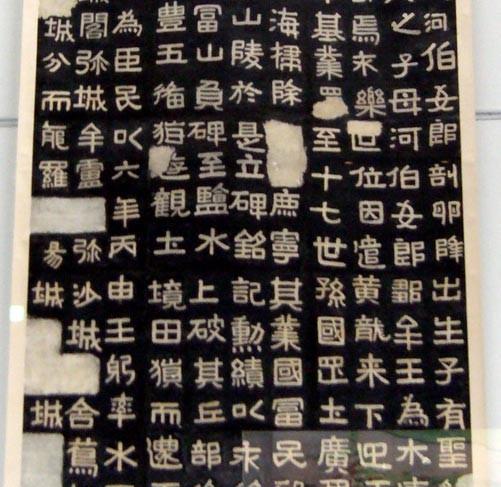 河伯女郎剖卵降出生子有聖
之子母河伯女郎鄒牟王為木連
焉不樂世位因遣黄龍来下迎王
基業至十七世孫國罡上廣開
海掃除庶寧其業國富民殷
山陵於是立碑銘記勳績以永
富山負碑至鹽水上破其丘部洛
豐五備猶遊觀土境田獵而還
為臣民以六年丙申王躬率水
閣弥城牟盧弥沙城舍蔦
城分而能羅昜城城